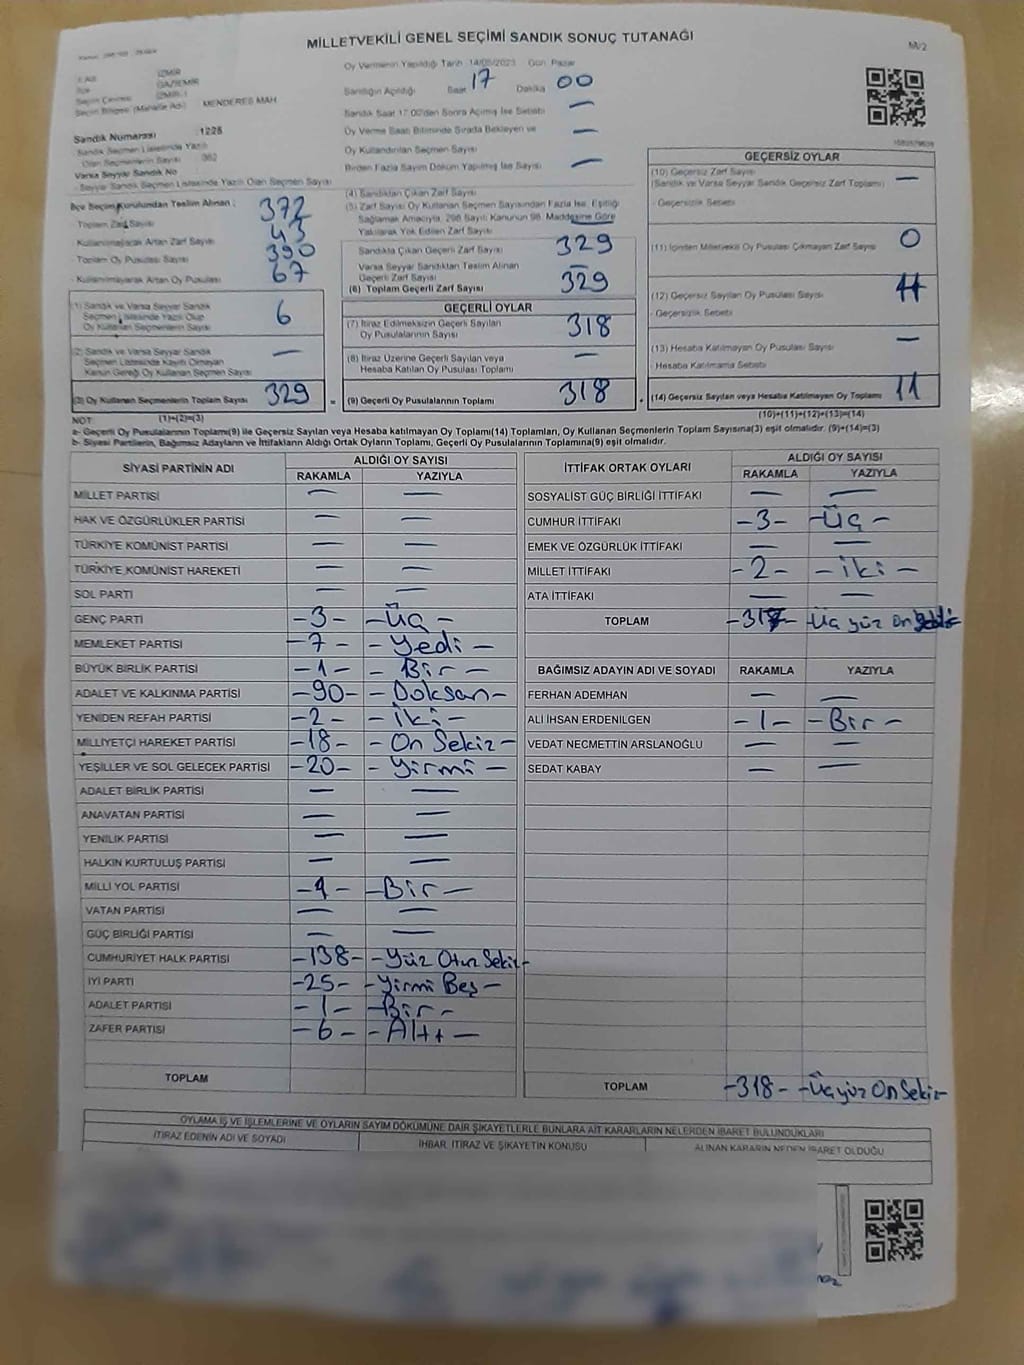 MİLLETVEKİLİ GENEL SEÇİMİ SANDIK SONUÇ TUTANAĞI
M/2
İl Adı İZMİR
İlçe GAZİEMİR
Seçim Çevresi İZMİR-1
Seçim Bölgesi (Mahalle Adı) MENDERES MAH
Sandık Numarası 1225
Sandık Seçmen Listesinde Yazılı
Olan Seçmenlerin Sayısı 362
Varsa Seyyar Sandık No
Seyyar Sandık Seçmen Listesinde Yazılı Olan Seçmen Sayısı
İlçe Seçim Kurulundan Teslim Alınan :
- Toplam Zarf Sayısı 372
- Kullanılmayarak Artan Zarf Sayısı 43
- Toplam Oy Pusulası Sayısı 390
- Kullanılmayarak Artan Oy Pusulası 67
(1) Sandık ve Varsa Seyyar Sandık
Seçmen Listesinde Yazılı Olup
Oy Kullanan Seçmenlerin Sayısı 6
(2) Sandık ve Varsa Seyyar Sandık
Seçmen Listesinde Kayıtlı Olmayan
Kanun Gereği Oy Kullanan Seçmen Sayısı —
(3) Oy Kullanan Seçmenlerin Toplam Sayısı 329
(1)+(2)=(3)
Oy Vermenin Yapıldığı Tarih 14/05/2023 Gün Pazar
Sandığın Açıldığı Saat 17 Dakika 00
Sandık Saat 17:00'den Sonra Açılmış İse Sebebi —
Oy Verme Saati Bitiminde Sırada Bekleyen ve —
Oy Kullandırılan Seçmen Sayısı
Birden Fazla Sayım Döküm Yapılmış İse Sayısı —
(4) Sandıktan Çıkan Zarf Sayısı
(5) Zarf Sayısı Oy Kullanan Seçmen Sayısından Fazla İse, Eşitliği
Sağlamak Amacıyla, 298 Sayılı Kanunun 98. Maddesine Göre
Yakılarak Yok Edilen Zarf Sayısı
Sandıkta Çıkan Geçerli Zarf Sayısı 329
Varsa Seyyar Sandıktan Teslim Alınan
Geçerli Zarf Sayısı —
(6) Toplam Geçerli Zarf Sayısı 329
GEÇERLİ OYLAR
(7) İtiraz Edilmeksizin Geçerli Sayılan
Oy Pusulalarının Sayısı 318
(8) İtiraz Üzerine Geçerli Sayılan veya
Hesaba Katılan Oy Pusulası Toplamı —
(9) Geçerli Oy Pusulalarının Toplamı 318
GEÇERSİZ OYLAR
(10) Geçersiz Zarf Sayısı —
(Sandık ve Varsa Seyyar Sandık Geçersiz Zarf Toplamı)
- Geçersizlik Sebebi
(11) İçinden Milletvekili Oy Pusulası Çıkmayan Zarf Sayısı 0
(12) Geçersiz Sayılan Oy Pusulası Sayısı 11
- Geçersizlik Sebebi
(13) Hesaba Katılmayan Oy Pusulası Sayısı —
- Hesaba Katılmama Sebebi
(14) Geçersiz Sayılan veya Hesaba Katılmayan Oy Toplamı 11
(10)+(11)+(12)+(13)=(14)
NOT
a- Geçerli Oy Pusulalarının Toplamı(9) ile Geçersiz Sayılan veya Hesaba katılmayan Oy Toplamı(14) Toplamları, Oy Kullanan Seçmenlerin Toplam Sayısına(3) eşit olmalıdır. (9)+(14)=(3)
b- Siyasi Partilerin, Bağımsız Adayların ve İttifakların Aldığı Ortak Oyların Toplamı, Geçerli Oy Pusulalarının Toplamına(9) eşit olmalıdır.
SİYASİ PARTİNİN ADI ALDIĞI OY SAYISI
RAKAMLA YAZIYLA
MİLLET PARTİSİ — —
HAK VE ÖZGÜRLÜKLER PARTİSİ — —
TÜRKİYE KOMÜNİST PARTİSİ — —
TÜRKİYE KOMÜNİST HAREKETİ — —
SOL PARTİ — —
GENÇ PARTİ -3- -Üç-
MEMLEKET PARTİSİ -7- -Yedi-
BÜYÜK BİRLİK PARTİSİ -1- -Bir-
ADALET VE KALKINMA PARTİSİ -90- -Doksan-
YENİDEN REFAH PARTİSİ -2- -İki-
MİLLİYETÇİ HAREKET PARTİSİ -18- -On Sekiz-
YEŞİLLER VE SOL GELECEK PARTİSİ -20- -Yirmi-
ADALET BİRLİK PARTİSİ — —
ANAVATAN PARTİSİ — —
YENİLİK PARTİSİ — —
HALKIN KURTULUŞ PARTİSİ — —
MİLLİ YOL PARTİSİ -1- -Bir-
VATAN PARTİSİ — —
GÜÇ BİRLİĞİ PARTİSİ — —
CUMHURİYET HALK PARTİSİ -138- -Yüz Otuz Sekiz-
İYİ PARTİ -25- -Yirmi Beş-
ADALET PARTİSİ -1- -Bir-
ZAFER PARTİSİ -6- -Altı-
TOPLAM
İTTİFAK ORTAK OYLARI ALDIĞI OY SAYISI
RAKAMLA YAZIYLA
SOSYALİST GÜÇ BİRLİĞİ İTTİFAKI — —
CUMHUR İTTİFAKI -3- -Üç-
EMEK VE ÖZGÜRLÜK İTTİFAKI — —
MİLLET İTTİFAKI -2- -iki-
ATA İTTİFAKI — —
TOPLAM -317- -Üç yüz on
BAĞIMSIZ ADAYIN ADI VE SOYADI RAKAMLA YAZIYLA
FERHAN ADEMHAN — —
ALİ İHSAN ERDENİLGEN -1- -Bir-
VEDAT NECMETTİN ARSLANOĞLU — —
SEDAT KABAY — —
TOPLAM -318- -Üçyüz On Sekiz-
OYLAMA İŞ VE İŞLEMLERİNE VE OYLARIN SAYIM DÖKÜMÜNE DAİR ŞİKAYETLERLE BUNLARA AİT KARARLARIN NELERDEN İBARET BULUNDUKLARI
İTİRAZ EDENİN ADI VE SOYADI İHBAR, İTİRAZ VE ŞİKAYETİN KONUSU ALINAN KARARIN NEDEN İBARET OLDUĞU